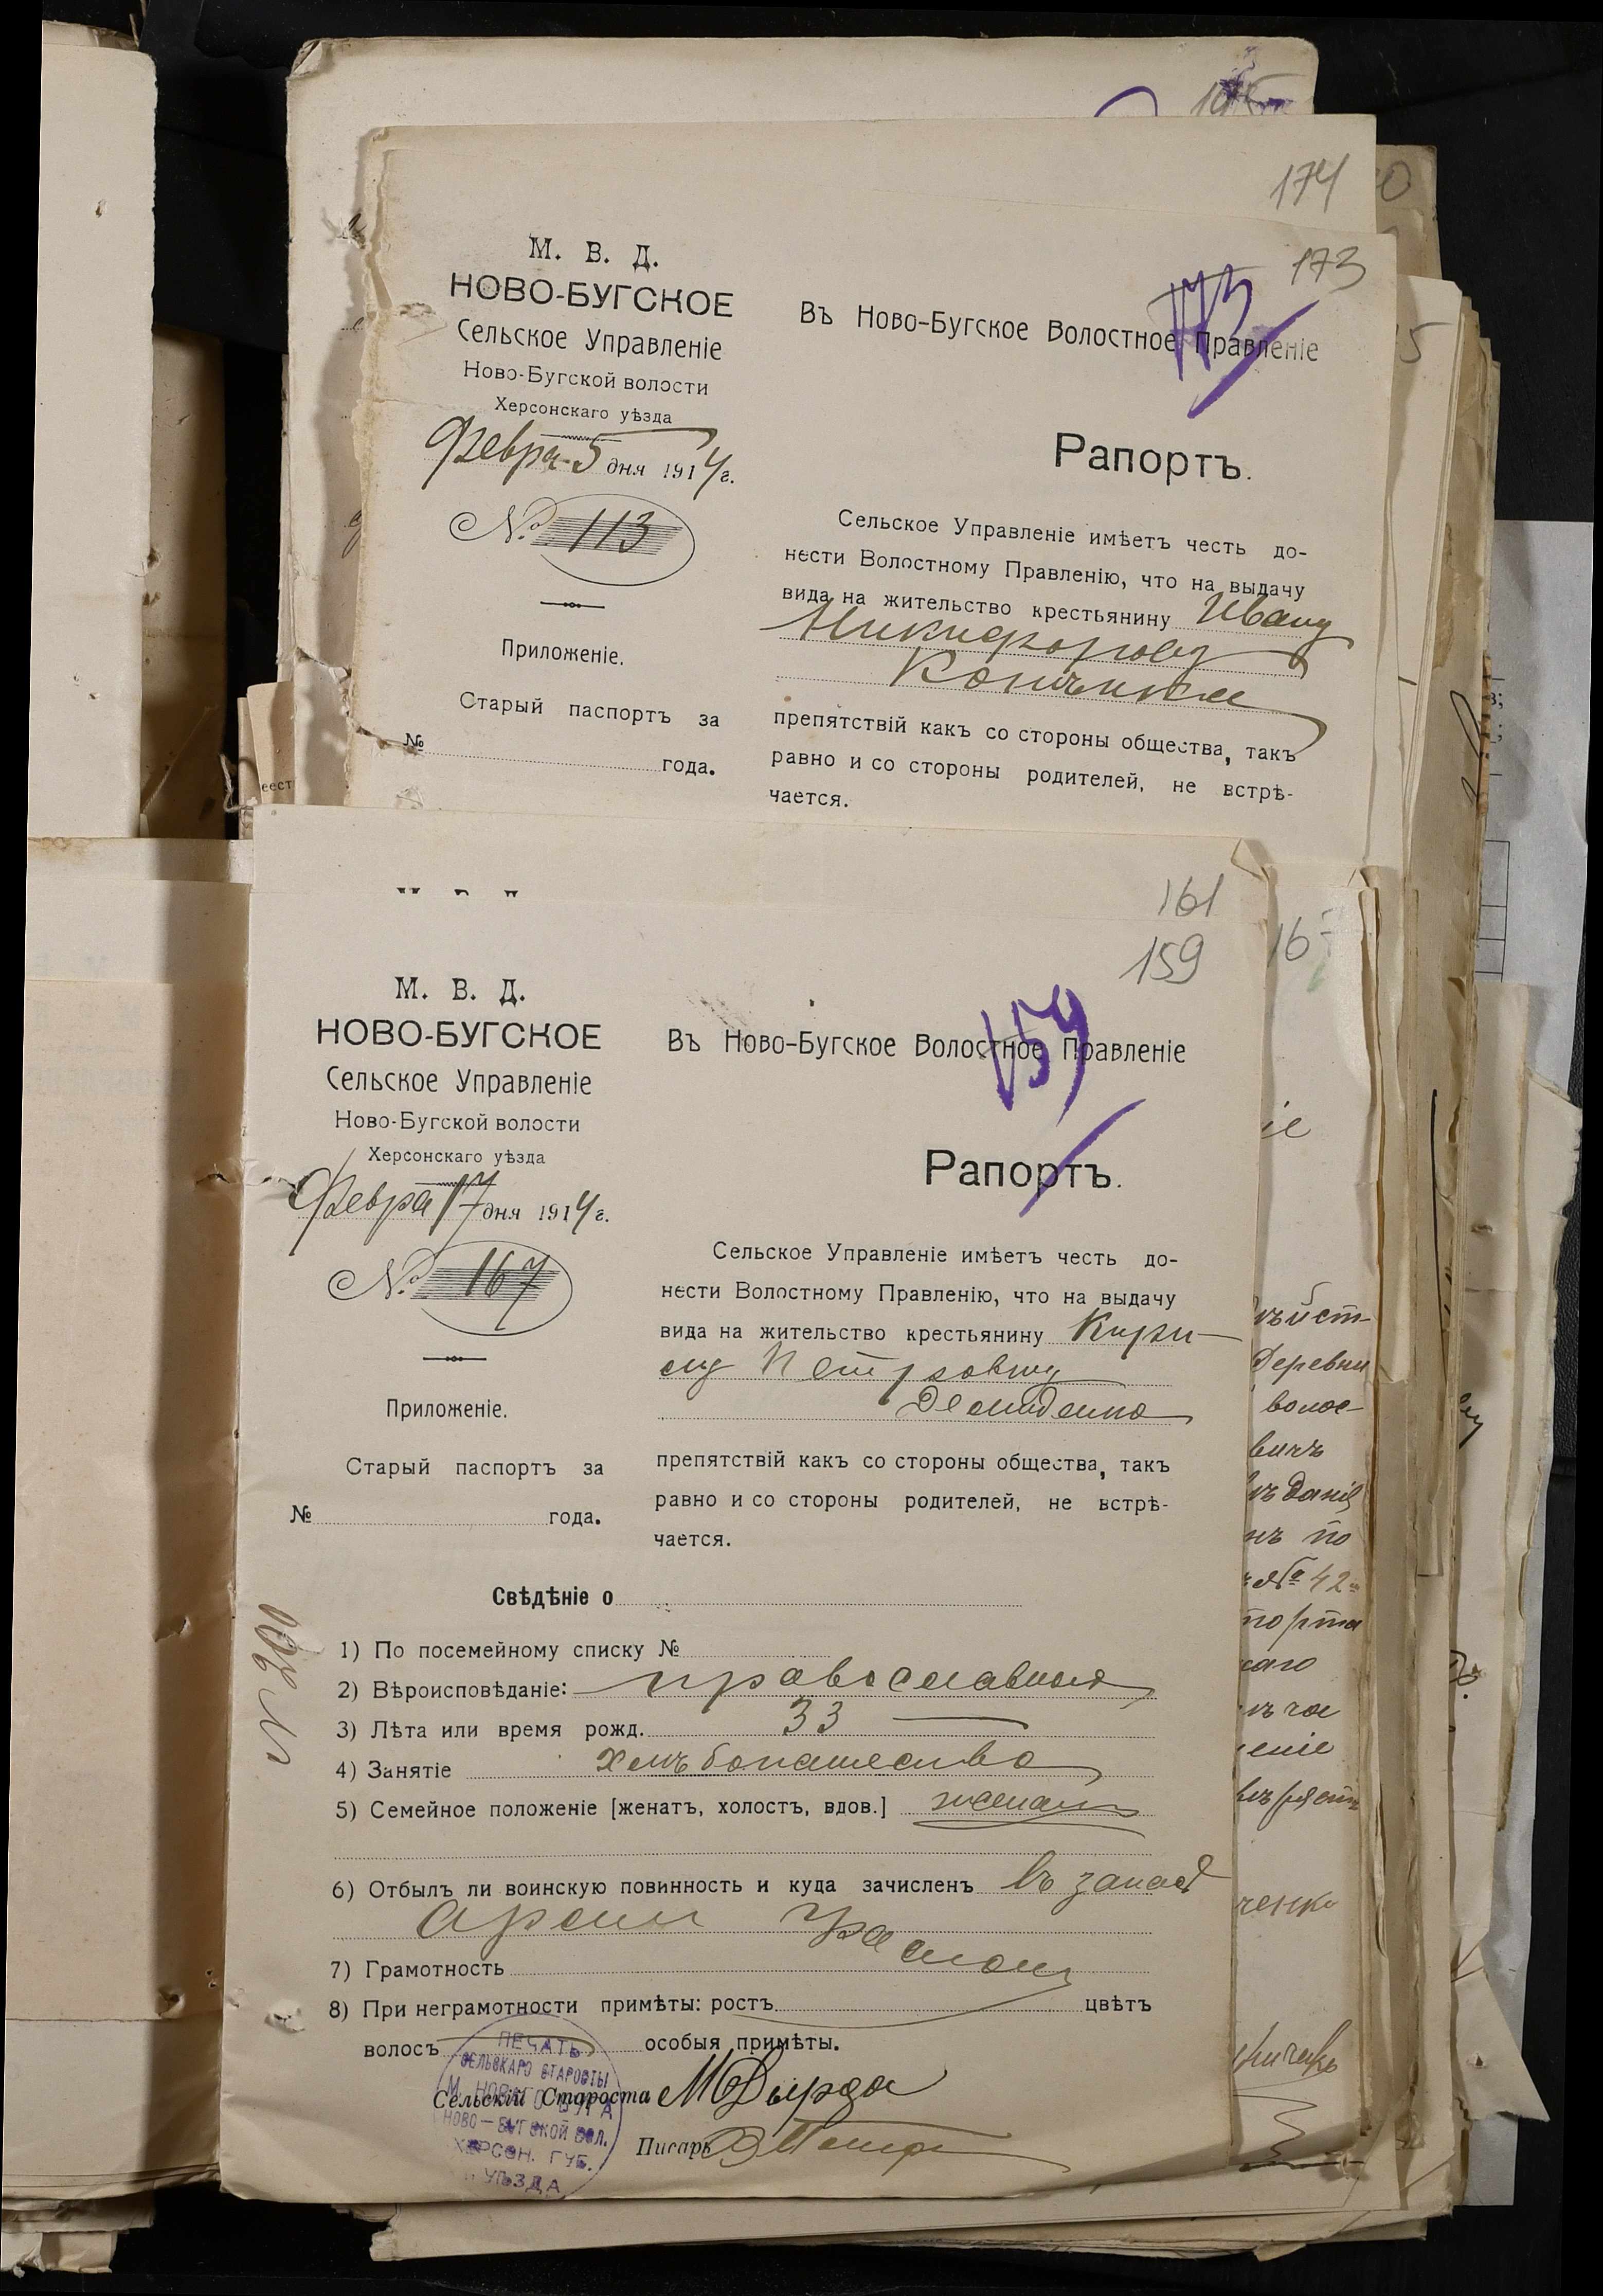 174
173
М. В. Д.
НОВО-БУГСКОЕ
Сельское Управленіе
Ново-Бугской волости
Херсонскаго уѣзда
Февра 5 дня 1914 г.
№ 113
Приложеніе.
Старый паспортъ за
№ года.
173
Въ Ново-Бугское Волостное Правленіе
Рапортъ.
Сельское Управленіе имѣетъ честь до-
нести Волостному Правленію, что на выдачу
вида на жительство крестьянину Ивану
Никифорову
препятствій какъ со стороны общества, такъ
равно и со стороны родителей, не встрѣ-
чается.
161
159
М. В. Д.
НОВО-БУГСКОЕ
Сельское Управленіе
Ново-Бугской волости
Херсонскаго уѣзда
Февра 17 дня 1914 г.
№ 167
Приложеніе.
Старый паспортъ за
№ года.
159
Въ Ново-Бугское Волостное Правленіе
Рапортъ.
Сельское Управленіе имѣетъ честь до-
нести Волостному Правленію, что на выдачу
вида на жительство крестьянину Кири-
лу Петровичу
Демиденко
препятствій какъ со стороны общества, такъ
равно и со стороны родителей, не встрѣ-
чается.
Свѣдѣніе о
№ 200
1) По посемейному списку №
2) Вѣроисповѣданіе: православный
3) Лѣта или время рожд. 33
4) Занятіе хлѣбопашество
5) Семейное положеніе [женатъ, холостъ, вдов.] женатъ
6) Отбылъ ли воинскую повинность и куда зачисленъ въ запасъ
арміи
7) Грамотность
8) При неграмотности примѣты: ростъ цвѣтъ
волосъ особыя примѣты.
Сельскій Староста МДырда
Писарь
ПЕЧАТЬ
СЕЛЬСКАГО СТАРОСТЫ
М. НОВАГО БУГА
НОВО-БУГСКОЙ ВОЛ.
ХЕРСОН. ГУБ.
УѢЗДА